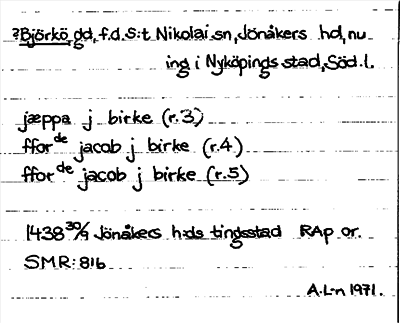 ?Björkö, gd, f.d. S:t Nikolai sn, Jönåkers hd, nu
ing i Nyköpings stad, Söd. l.
jæppa j birke (r.3)
ffor de jacob j birke (r.4)
ffor de jacob j birke (r.5)
1438 30/9 Jönåkers h:ds tingsstad RAp or.
SMR: 816
A.L-n 1971.